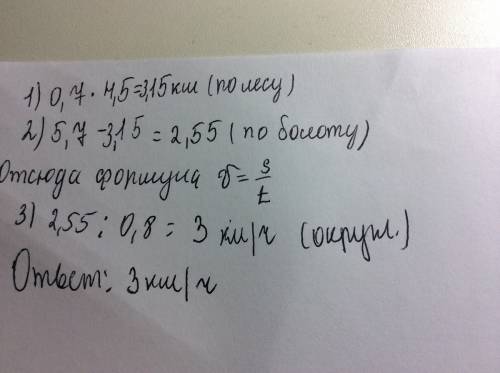 1) 0,7 · 4,5 = 3,15 км (по лесу)
2) 5,7 - 3,15 = 2,55 (по болоту)
Отсюда формула v = s/t
3) 2,55 : 0,8 = 3 км/ч (округл.)
Ответ: 3 км/ч